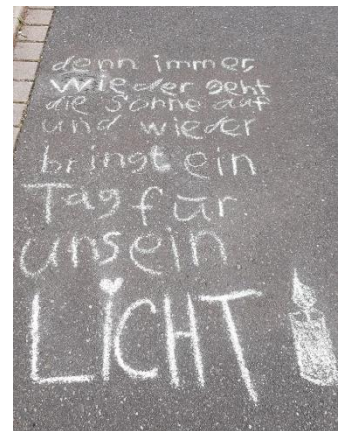 denn immer
wieder geht
die Sonne auf
und wieder
bringt ein
Tag für
uns ein
LiCHT